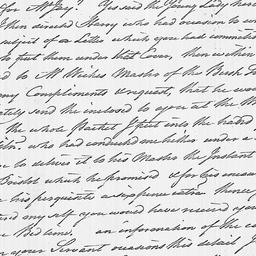 for Mr Gay? Yes said the Young Lady
then directed Harry who had occasion to
subject of a Letter which you had committed
to put them under that Cover, then within
to Mr Wickes Master of the
my Compliments & request, that he wou
ately send the inclosed to you at the
the whole Packet I put into the hands
who had conducted me hither under a
to deliver it to his Master the Instant
Bristol which he promised & for his encou
his perquisite a sixpence extra. hence
send my self you would have received
Bed time. an information of the
your Servant occasions this detail I